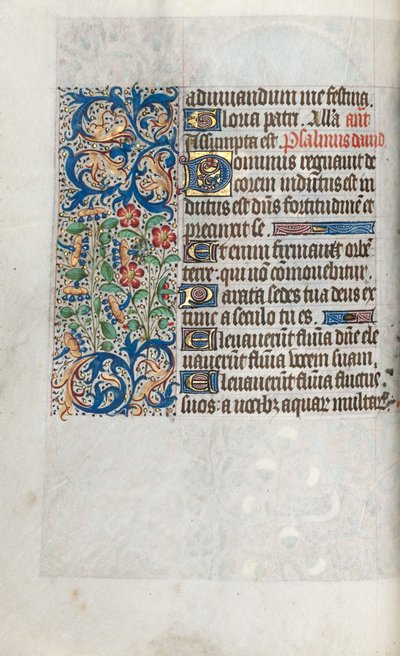 adiuuandum me festina.
Gloria patri. Alla ant
Assumpta est. Psalmus dauid
Dominus regnauit de
corem indutus est in
dutus est dns fortitudinē et
precinxit se.
Etenim firmauit orbē
terre: qui nō comouebitur.
Parata sedes tua deus ex
tunc a seculo tu es.
Eleuauerūt flumīa dn̄e ele
uauerūt flumīa vocem suam.
Eleuauerūt flumīa fluctus
suos: a vocibꝫ aquar multar